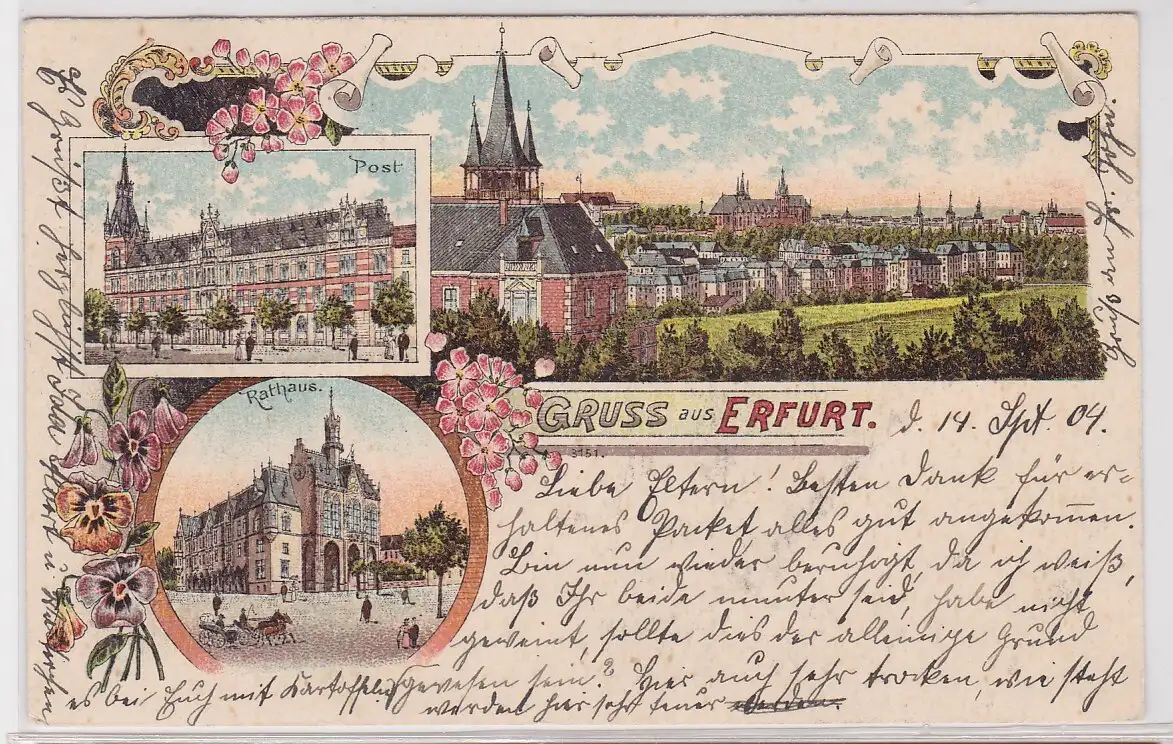 Post
Rathaus.
GRUSS aus ERFURT.
3151.
d. 14. Spt. 04.
Liebe Eltern! Besten Dank für er-
haltenes Packet alles gut angekommen.
Bin nun wieder beruhigt, da ich weiß,
daß Ihr beide munter seid, habe nicht
geweint, sollte dies der alleinige Grund
gewesen sein? Hier auch sehr trocken, wie steht
es bei Euch mit Kartoffeln
werden hier sehr teuer
Es grüßt herzlichst u.
Euer Sohn.